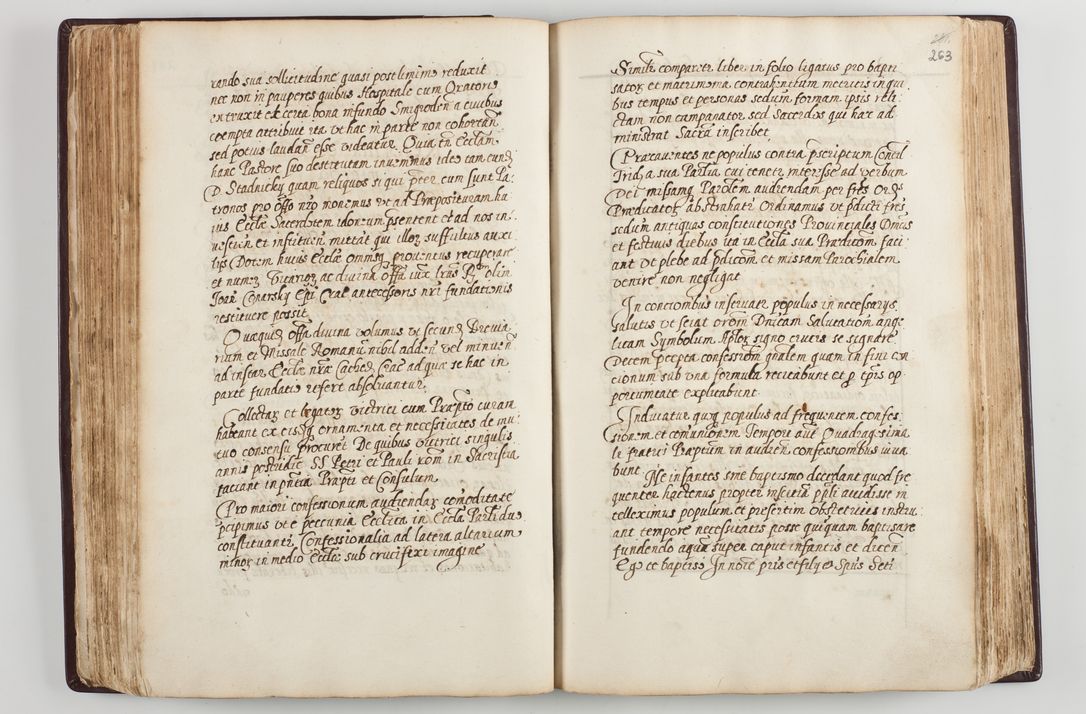 rando sua sollicitudine quasi postliminio reduxit
nec non in pauperes quibus Hospitale cum Oratorio
extruxit et certa bona in fundo Smigroden a civibus
coempta attribuit ita ut hac in parte non cohortan̄
sed potius laudan̄ esse videatur. Quia tn̄ Eccliam
hanc Pastore suo destitutam invenimus ideo tam eund
D. Stadnicky quam reliquos si qui pter eum sunt Pa
tronos pro offo nro monemus ut ad Praeposituram hu
ius Ecclae Sacerdotem idoneum psentent et ad nos in
vestien et instituen mittat qui illor suffultus auxi
lijs Dotem huius Ecclae omnesq proventus recuperare
et numer Vicarior ac divina offa iux lras Rmi olim
Joan Conarsky Epi Crac antecessoris nri fundationis
restituere possit
Quaequid offa divina volumus ut secund Brevia
rium et Missale Romanu nihil adden vel minuen
ad instar Ecclae nrae Cathed Crac ad quae se hac in
parte fundatio refert absolvantur
Collectar et legator vitrici cum Praepto curam
habeant ex eisq ornamenta et necessitates de mu
tuo consensu procuret De quibus vitrici singulis
annis postridie SS Petri et Pauli rom in Sacristia
faciant in pntia Praepti et Consulum
Pro maiori confessionum audiendar comoditate
pcipimus ut e peccunia Ecclica in Eccla Parlidua
constituantr Confessionalia ad latera altarium
minor in medio Ecclae sub crucifixi imagine
263
Simili comparetr liber in folio ligatus pro bapti
sator et matrimonia contrahentium metricis in qui
bus tempus et personas sedum formam ipsis reli
ctam non campanator sed Sacerdos qui haec ad
ministrat Sacra inscribet
Praecaventes ne populus contra pscriptum Concil
Trid a sua Parlia cui tenetr interesse ad verbum
Dei missamq Parolem audiendam per fres Ord
Praedicator abstrahatr Ordinamus ut pdicti fres
sedum antiquas constitutiones Provinciales Dnicis
et festivis diebus ita in Eccla sua Praedicaom faci
ant ut plebs ad pdicaom et missam Parochialem
venire non negligat
In concionibus inservatr populus in necessarys
salutis ut sciat oraon Dnicam Salutatiom ange
licam Symbolum Aplor signo crucis se signare
Decem pcepta confessiom gnalem quam in fini con
cionum sub una formula recitabunt et p Epis op
portunitate explicabunt
Inducatur quoq populus ad frequentem confes
sionem et comunionem Tempore aut Quadragesima
li fratri Praeptum in audien confessionibus iuva
bunt
Ne infantes sine baptismo decedant quod fre
quenter hactenus propter inscitia ppli accidisse in
telleximus populum et presertim obstetrices instru
ant tempore necessitatis posse quiquam baptisare
fundendo aqua super caput infantis et dicen
Ego te baptiso In noie pris et filij et Spus scti